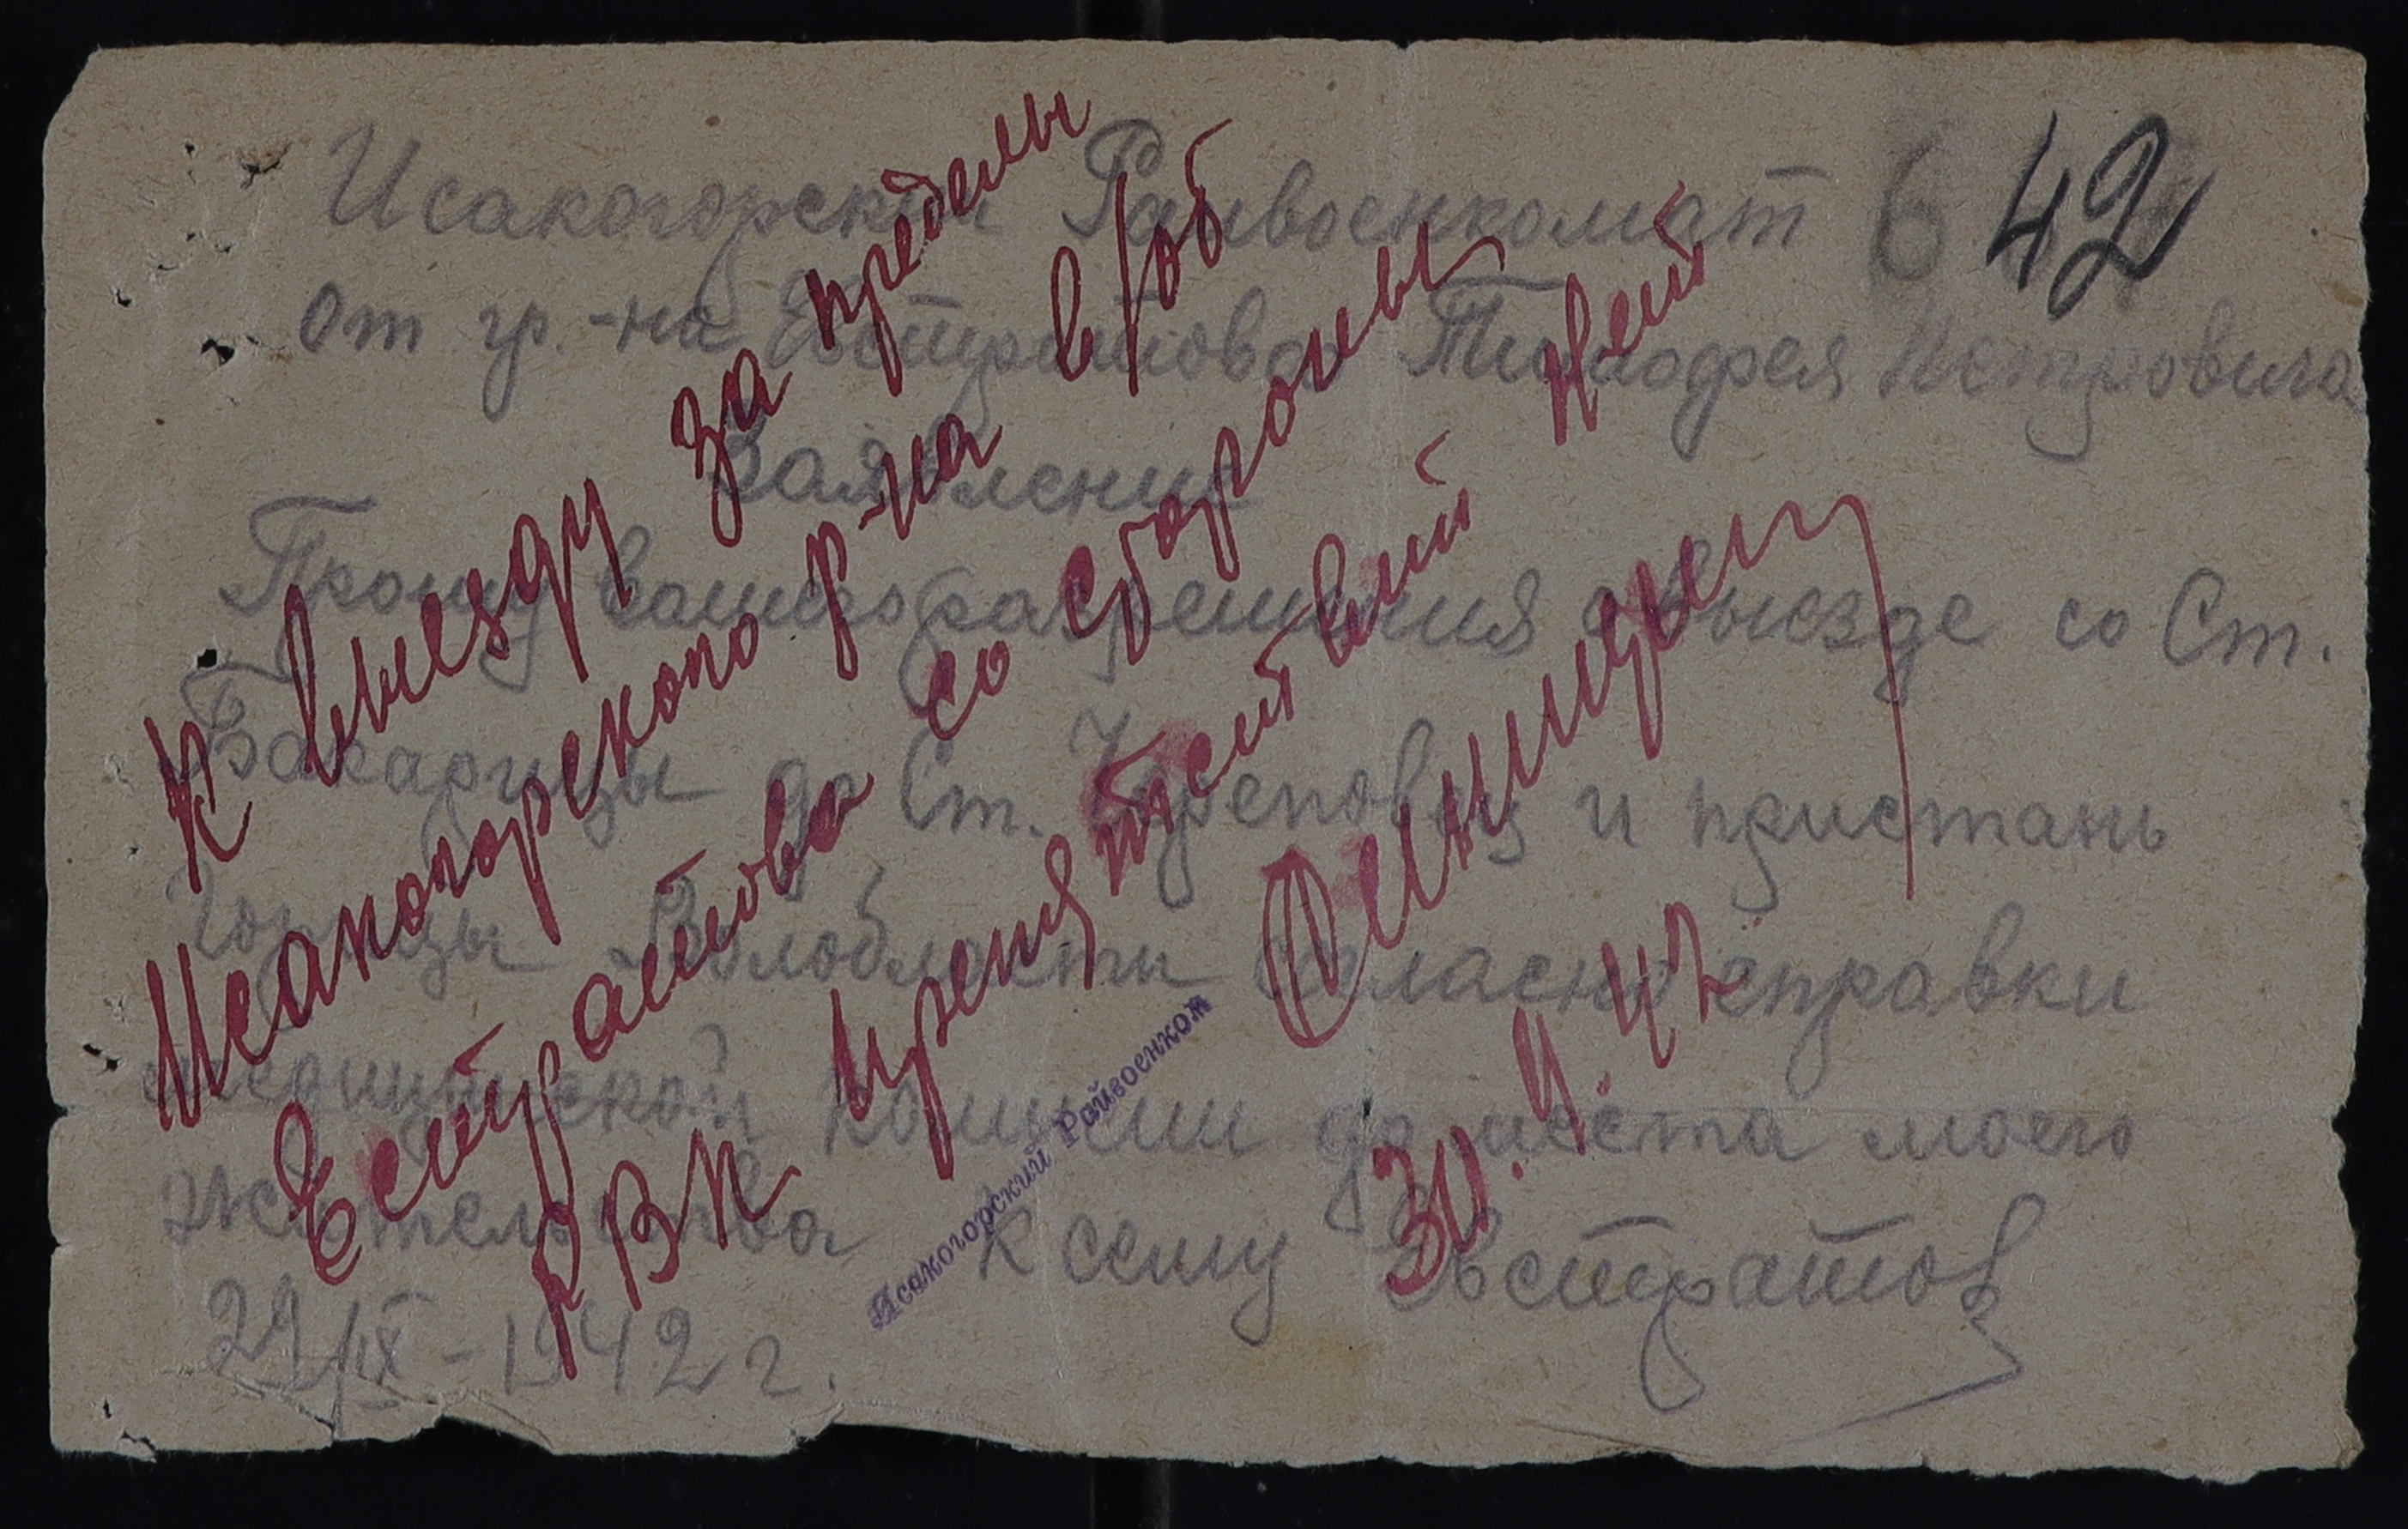 Исакогорский Райвоенкомат
6 42
от гр.-на Евстратова Тимофея Петровича
Заявление
Прошу вашего разрешения о выезде со Ст.
Бакарицы до Ст. Череповец и пристань
Горицы Вологобласти согласно справки
медицинской комисии до места моего
жительства к сему Евстратов
29/IX-1942 г.
К выезду за пределы
Исакогорского р-на в/об
Естратова со стороны
РВК препятствий нет
Исакогорский Райвоенком
30.9.42